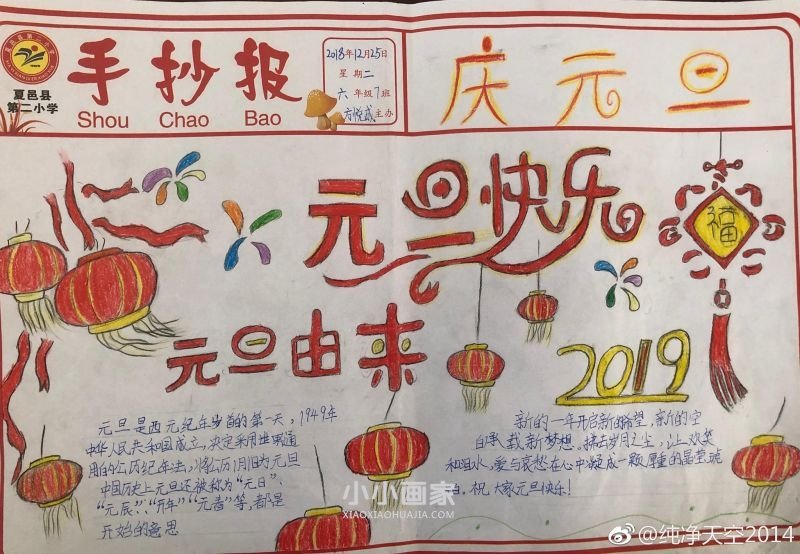 夏邑县
第二小学
手抄报
Shou Chao Bao
2018年12月25日
星期二
六年级7班
主办
庆元旦
元旦快乐
福
元旦由来
2019
元旦是西元纪年岁首的第一天，1949年
中华人民共和国成立，决定采用世界通
用的公历纪年法，将公历1月1日为元旦
中国历史上元旦还被称为“元日”、
“元辰”、“开年”“元春”等，都是
开始的意思
新的一年开启新的希望，新的空
白承载新梦想。拂去岁月之尘，让欢笑
和泪水，爱与哀愁在心中凝成一颗厚重的晶莹琥
珀。祝大家元旦快乐！
小小画家
XIAOXIAOHUAJIA.COM
@纯净天空2014